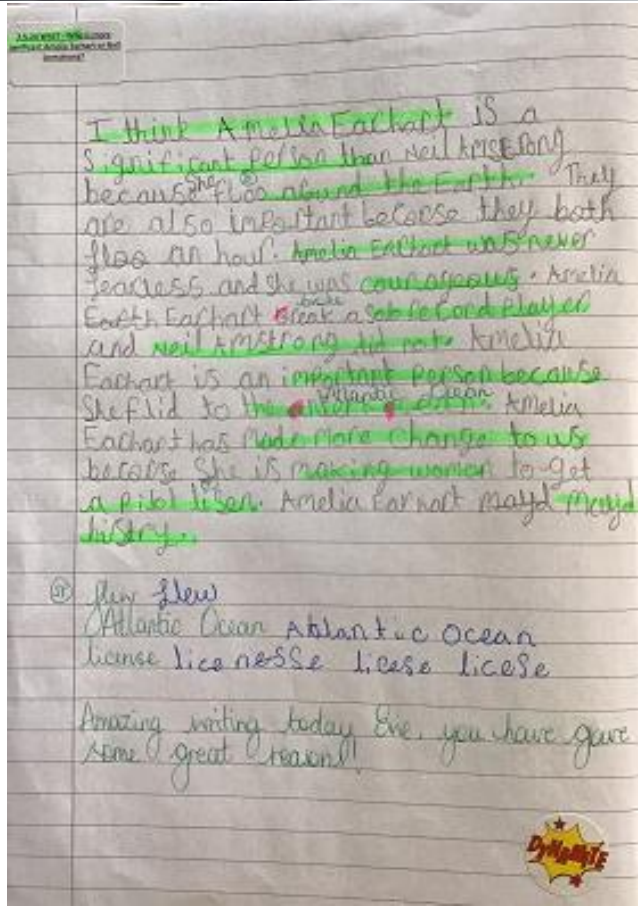 I think Amelia Eachart is a
significant person than Neil Armstrong
because she floo around the Earth. They
are also important becorse they both
floo an hour. Amelia Eachart was never
fearless and she was courageous. Amelia
Earth Eachart break broke a record player
and Neil Armstrong did not. Amelia
Eachart is an important person because
She flid to the Atlantic Ocean. Amelia
Eachart has made more change to us
becorse She is making women to get
a pilot lisen. Amelia Earhart mayd mayd
histry.
SP flew flew
Atlantic Ocean Atlantic Ocean
license licenesse licese licese
Amazing writing today Eve, you have gave
some great reasons!
DYNAMITE